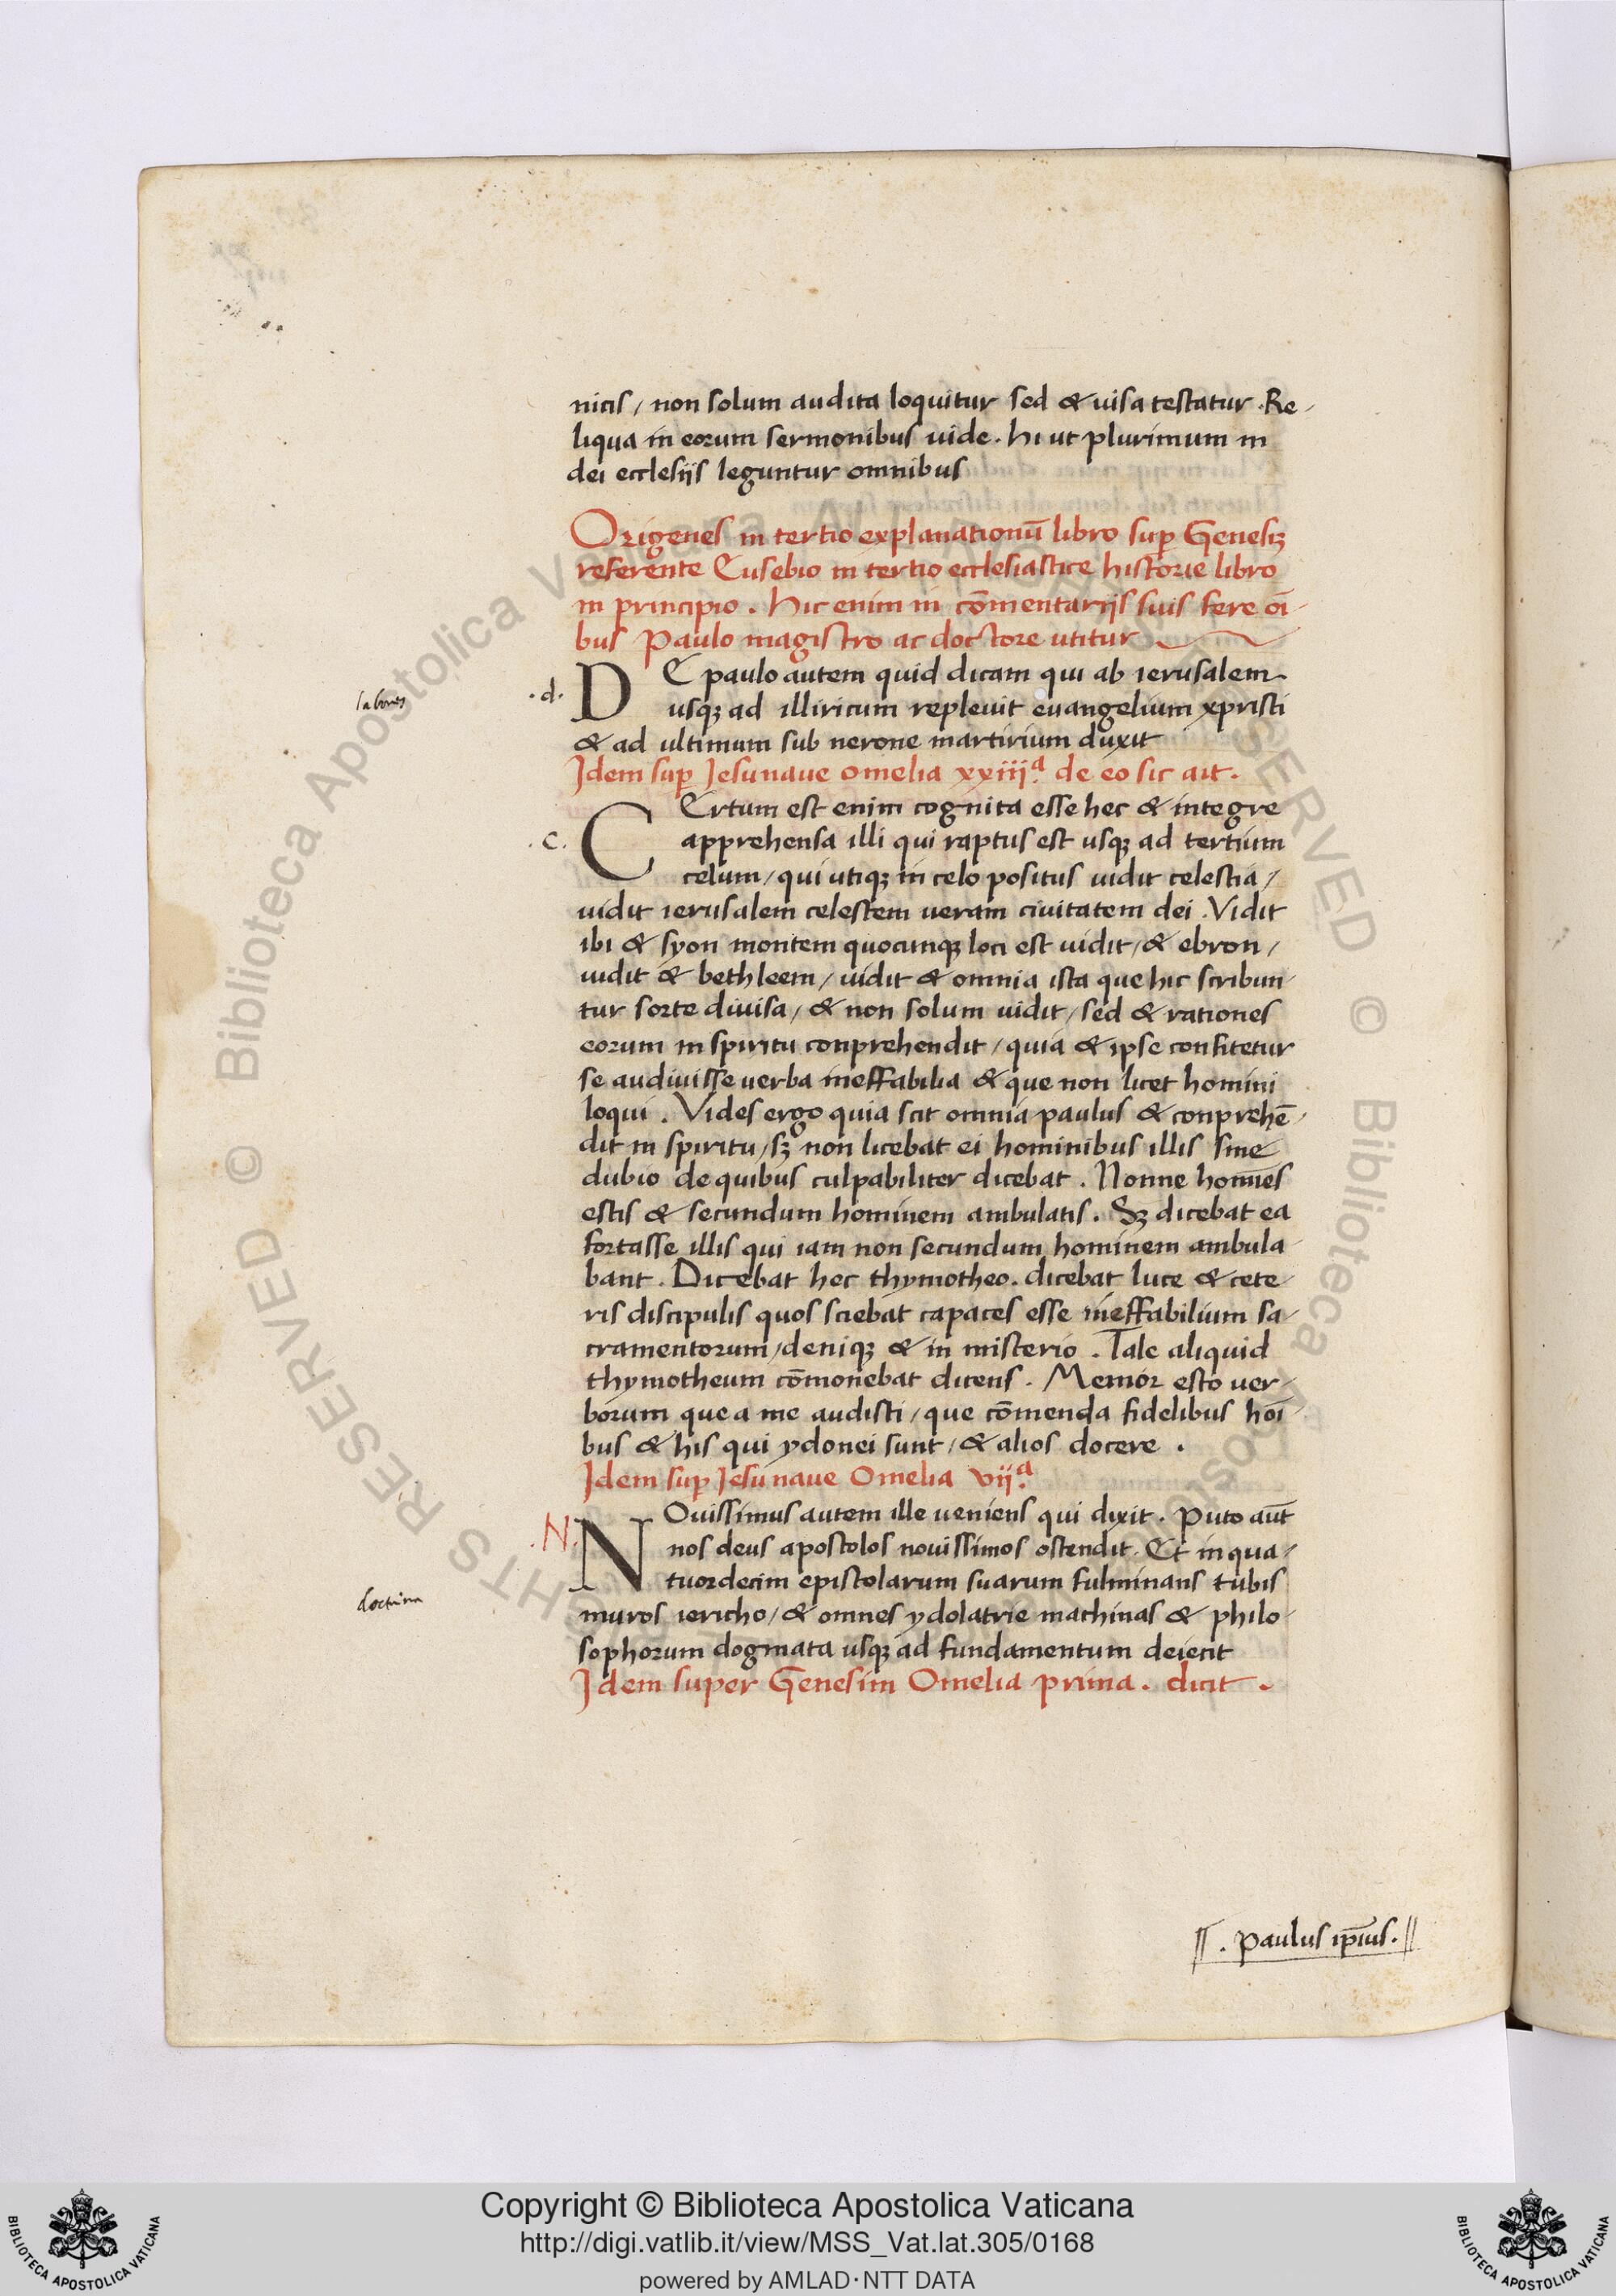 nicis / non solum audita loquitur sed & uisa testatur . Re-
liqua in eorum sermonibus uide . hi ut plurimum in
dei ecclesijs leguntur omnibus
Origenes in tertio explanationū libro sup̱ Genesiꝫ
referente Eusebio in tertio ecclesiastice historie libro
in principio . Hic enim in cōmentarijs suis fere oī-
bus Paulo magistro ac doctore utitur
labores
.d. DE paulo autem quid dicam qui ab ierusalem
usqꝫ ad illiricum repleuit euangelium xpristi
& ad ultimum sub nerone martirium duxit
Jdem sup̱ Jesunaue omelia xxiijª. de eo sic ait .
.c. CErtum est enim cognita esse hec & integre
apprehensa illi qui raptus est usqꝫ ad tertium
celum / qui utiqꝫ in celo positus uidit celestia /
uidit ierusalem celestem ueram ciuitatem dei . Vidit
ibi & syon montem quocunqꝫ loci est uidit / & ebron /
uidit & bethleem / uidit & omnia ista que hic scribun-
tur sorte diuisa / & non solum uidit / sed & rationes
eorum in spiritu conprehendit / quia & ipse confitetur
se audiuisse uerba ineffabilia & que non licet homini
loqui . Vides ergo quia scit omnia paulus & conprehē-
dit in spiritu / sꝫ non licebat ei hominibus illis sine
dubio de quibus culpabiliter dicebat . Nonne homīes
estis & secundum hominem ambulatis . Sꝫ dicebat ea
fortasse illis qui iam non secundum hominem ambula-
bant . Dicebat hec thymotheo . dicebat luce & cete-
ris discipulis quos sciebat capaces esse ineffabilium sa-
cramentorum / deniqꝫ & in misterio . Tale aliquid
thymotheum cōmonebat dicens . Memor esto uer-
borum que a me audisti / que cōmenda fidelibus hoī-
bus & his qui ydonei sunt / & alios docere .
Jdem sup̱ Jesunaue Omelia vijª.
.N. NOuissimus autem ille ueniens qui dixit . Puto aut̄
nos deus apostolos nouissimos ostendit . Et in qua-
tuordecim epistolarum suarum fulminans tubis
doctrina
muros iericho / & omnes ydolatrie machinas & philo-
sophorum dogmata usqꝫ ad fundamentum deiecit
Jdem super Genesim Omelia prima . dicit .
. Paulus ip̄ius .
Copyright © Biblioteca Apostolica Vaticana
http://digi.vatlib.it/view/MSS_Vat.lat.305/0168
powered by AMLAD·NTT DATA
BIBLIOTECA APOSTOLICA VATICANA
BIBLIOTECA APOSTOLICA VATICANA